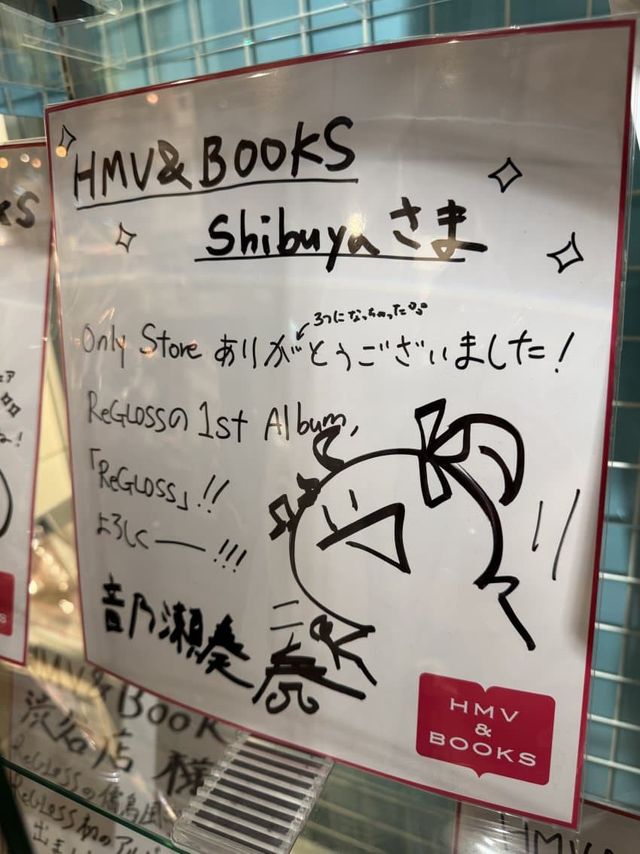 HMV&BOOKS
Shibuyaさま
3つになっちゃった
Only Store ありがとうございました!
ReGLOSSの 1st Album,
「ReGLOSS」!!
よろしくー!!!
音乃瀬奏
奏
HMV
&
BOOKS
HMV&BOOK
渋谷店 様
ReGLOSSの儒烏風
ReGLOSS初のアル
出ま